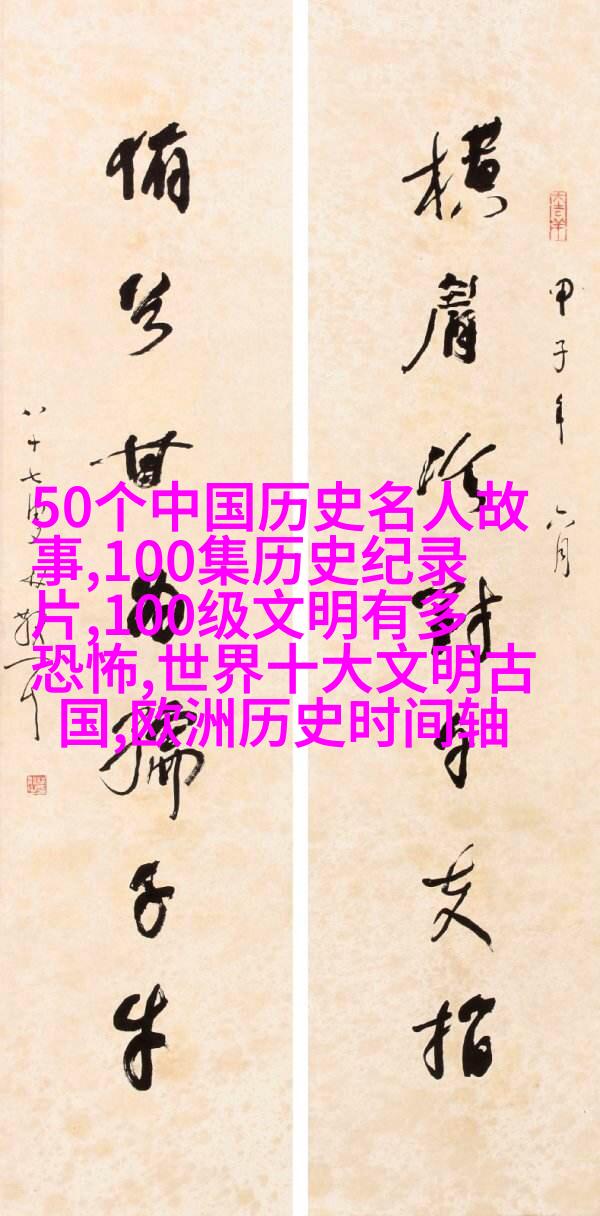 横眉冷對千夫指
甲子年 六月
俯首甘为孺子牛
八十七叟林散耳
50个中国历史名人故
事,100集历史纪录
片,100级文明有多
恐怖,世界十大文明古
国,欧洲历史时间轴